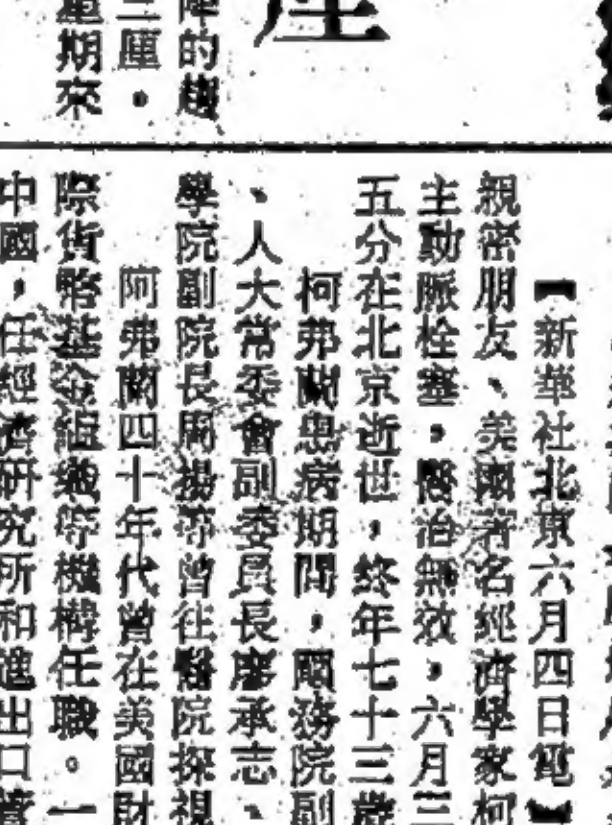 陣的趨
二厘。
星期來
【新華社北京六月四日電】
親密朋友、美國著名經濟學家柯
主動脈栓塞，醫治無效，六月三
五分在北京逝世，終年七十三歲
柯弗蘭患病期間，國務院副
、人大常委會副委員長廖承志、
學院副院長周揚等曾往醫院探視
阿弗蘭四十年代曾在美國財
際貨幣基金組織等機構任職。一
中國，任經濟研究所和進出口管